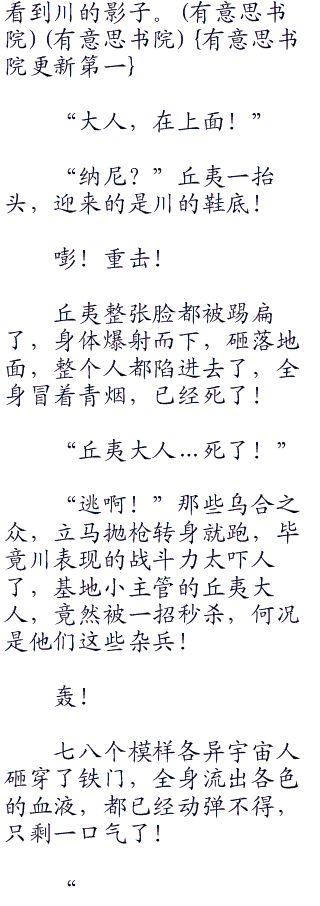 看到川的影子。(有意思书
院)(有意思书院){有意思书
院更新第一}
“大人，在上面！”
“纳尼？”丘夷一抬
头，迎来的是川的鞋底！
嘭！重击！
丘夷整张脸都被踢扁
了，身体爆射而下，砸落地
面，整个人都陷进去了，全
身冒着青烟，已经死了！
“丘夷大人…死了！”
“逃啊！”那些乌合之
众，立马抛枪转身就跑，毕
竟川表现的战斗力太吓人
了，基地小主管的丘夷大
人，竟然被一招秒杀，何况
是他们这些杂兵！
轰！
七八个模样各异宇宙人
砸穿了铁门，全身流出各色
的血液，都已经动弹不得，
只剩一口气了！
“